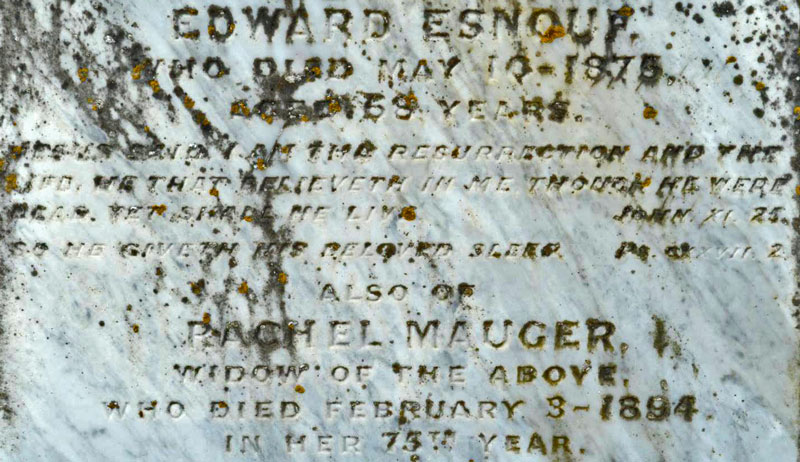 EDWARD ESNOUF,
WHO DIED MAY 10-1875.
AGED 68 YEARS.
JESUS SAID, I AM THE RESURRECTION AND THE
LIFE. HE THAT BELIEVETH IN ME THOUGH HE WERE
DEAD, YET SHALL HE LIVE JOHN. XI. 25.
SO HE GIVETH HIS BELOVED SLEEP. Ps. CXXVII. 2
ALSO OF
RACHEL MAUGER,
WIDOW OF THE ABOVE,
WHO DIED FEBRUARY 3-1894.
IN HER 75TH YEAR.